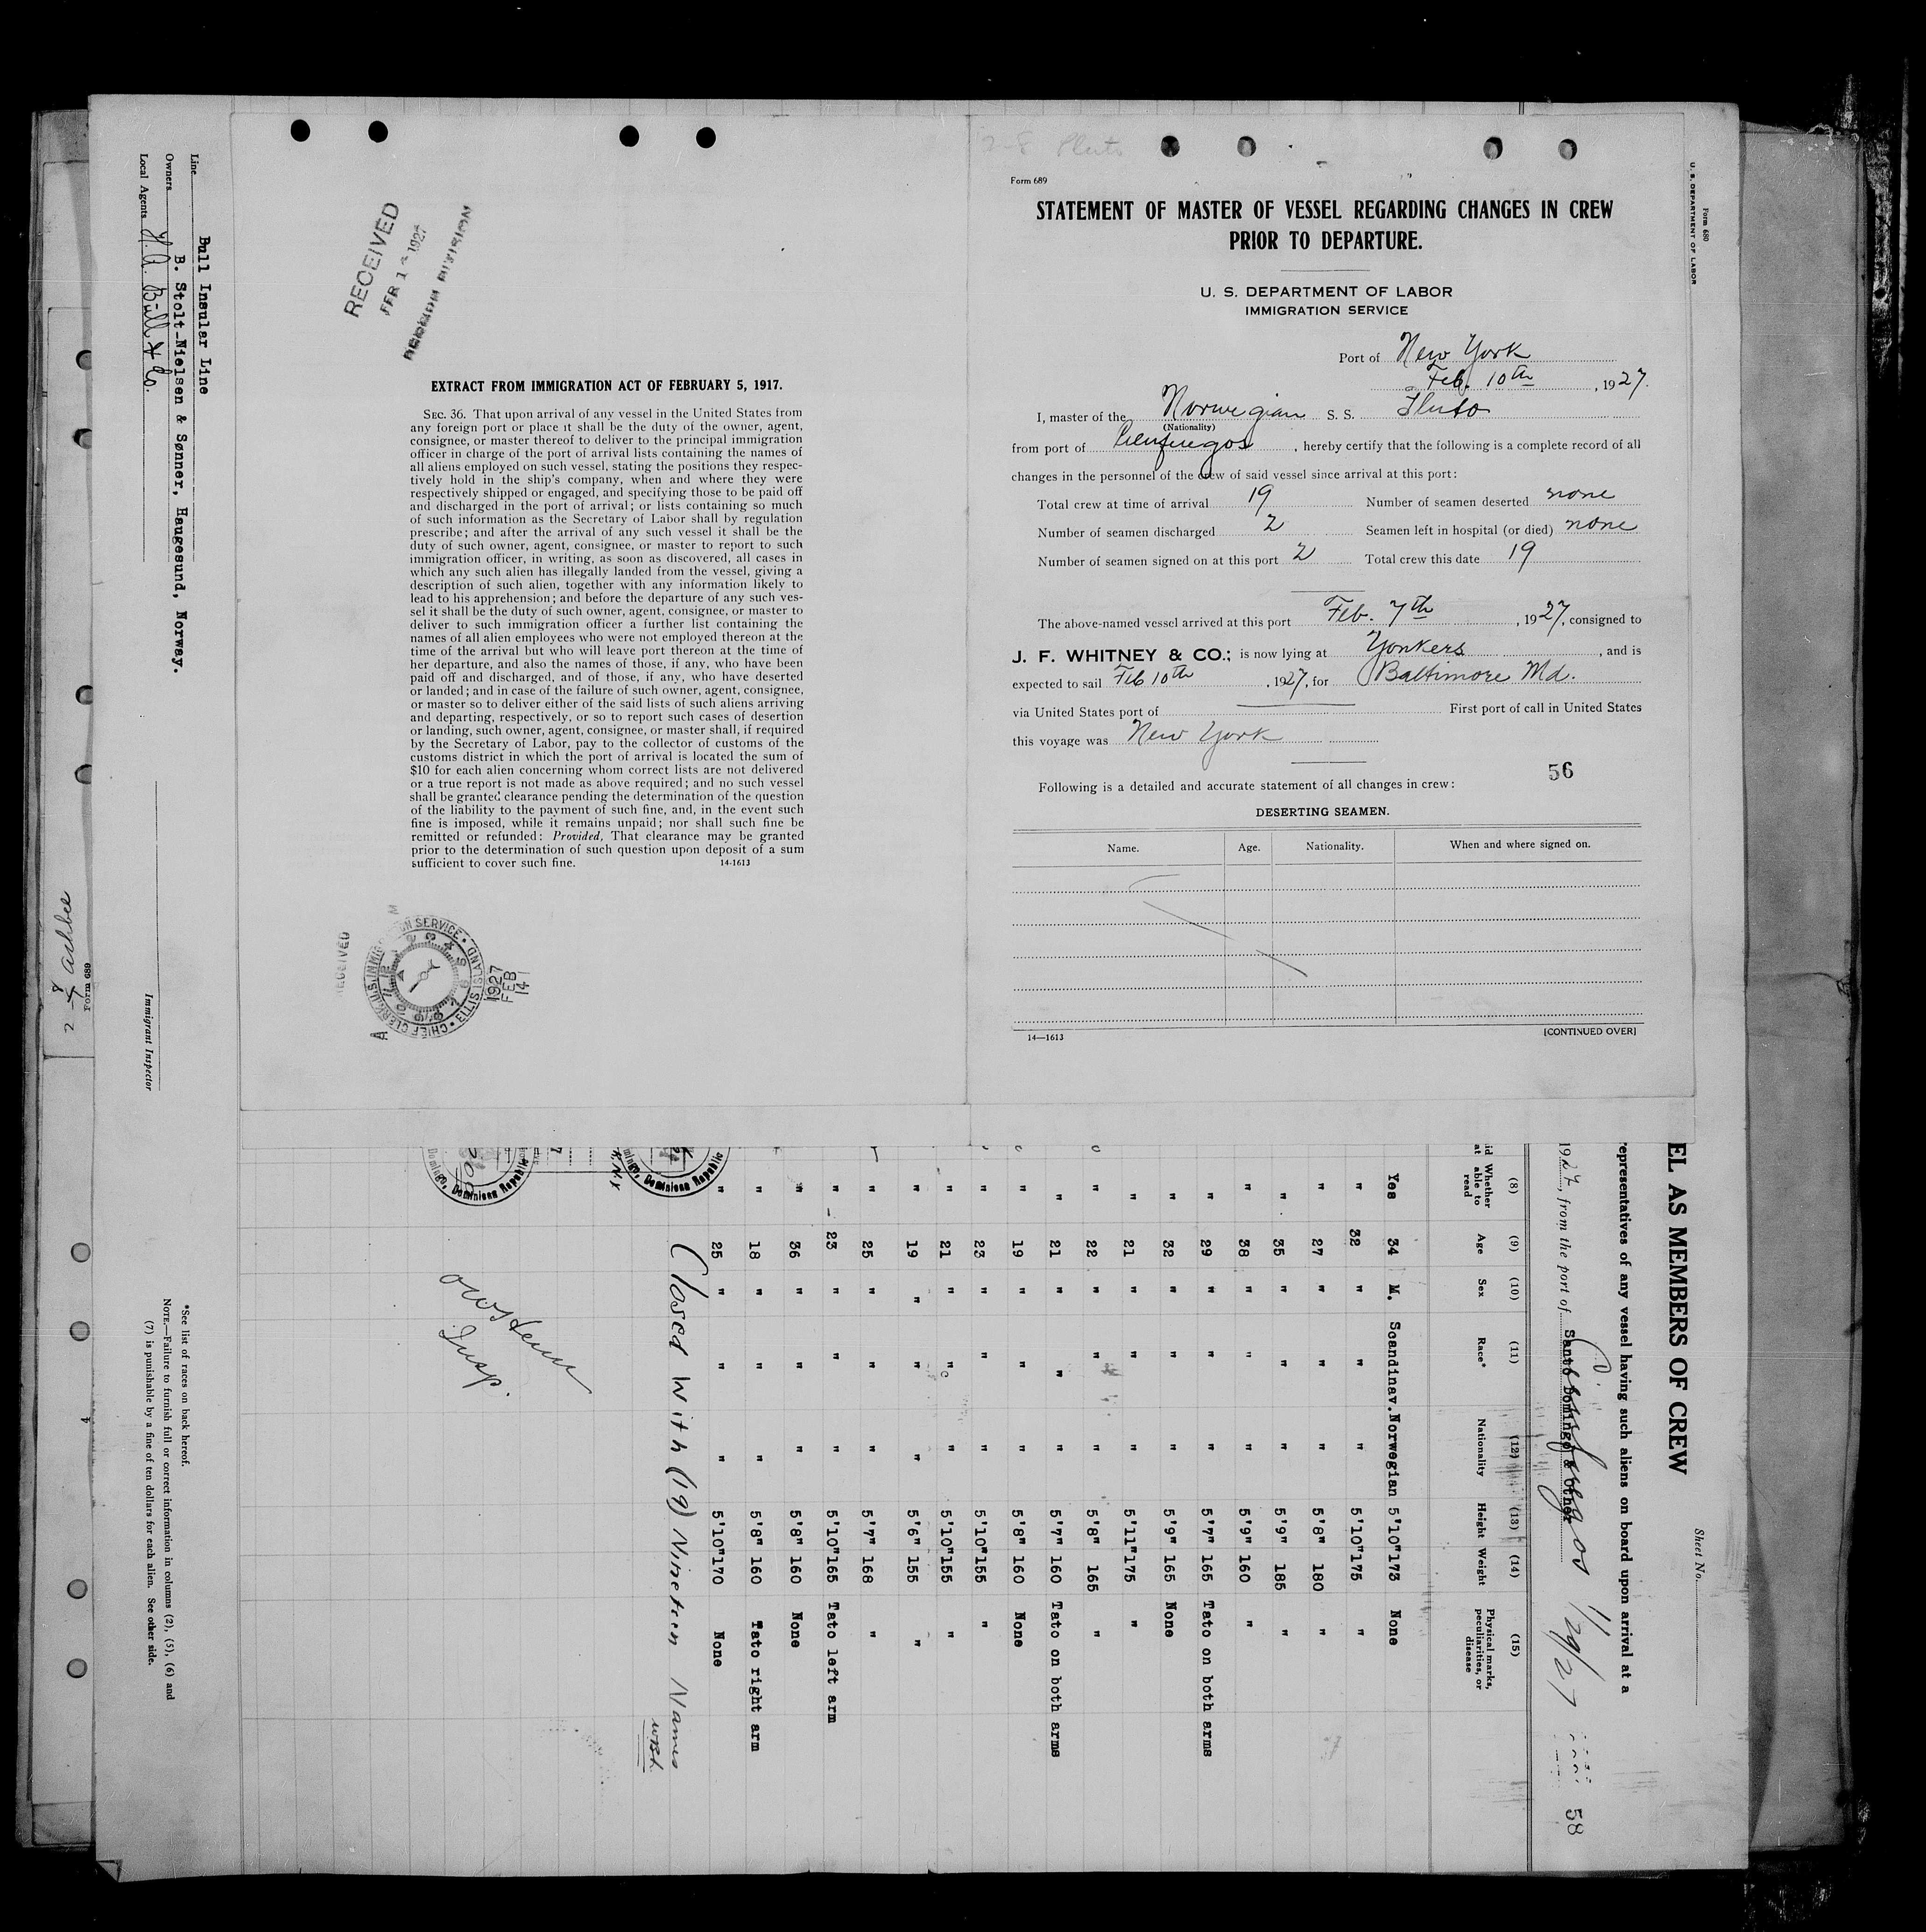 2-8 Pluto
Form 689
STATEMENT OF MASTER OF VESSEL REGARDING CHANGES IN CREW
PRIOR TO DEPARTURE.
U. S. DEPARTMENT OF LABOR
IMMIGRATION SERVICE
Port of New York
Feb. 10th, 1927.
I, master of the Norwegian S. S. Pluto
(Nationality)
from port of Cienfuegos, hereby certify that the following is a complete record of all
changes in the personnel of the crew of said vessel since arrival at this port:
Total crew at time of arrival 19 Number of seamen deserted none
Number of seamen discharged 2 Seamen left in hospital (or died) none
Number of seamen signed on at this port 2 Total crew this date 19
The above-named vessel arrived at this port Feb. 7th, 1927, consigned to
J. F. WHITNEY & CO.; is now lying at Yonkers, and is
expected to sail Feb 10th, 1927, for Baltimore Md.
via United States port of First port of call in United States
this voyage was New York
56
Following is a detailed and accurate statement of all changes in crew:
DESERTING SEAMEN.
Name. Age. Nationality. When and where signed on.
14—1613 [CONTINUED OVER]
RECEIVED
FEB 1 1927
DIVISION
EXTRACT FROM IMMIGRATION ACT OF FEBRUARY 5, 1917.
SEC. 36. That upon arrival of any vessel in the United States from
any foreign port or place it shall be the duty of the owner, agent,
consignee, or master thereof to deliver to the principal immigration
officer in charge of the port of arrival lists containing the names of
all aliens employed on such vessel, stating the positions they respec-
tively hold in the ship's company, when and where they were
respectively shipped or engaged, and specifying those to be paid off
and discharged in the port of arrival; or lists containing so much
of such information as the Secretary of Labor shall by regulation
prescribe; and after the arrival of any such vessel it shall be the
duty of such owner, agent, consignee, or master to report to such
immigration officer, in writing, as soon as discovered, all cases in
which any such alien has illegally landed from the vessel, giving a
description of such alien, together with any information likely to
lead to his apprehension; and before the departure of any such ves-
sel it shall be the duty of such owner, agent, consignee, or master to
deliver to such immigration officer a further list containing the
names of all alien employees who were not employed thereon at the
time of the arrival but who will leave port thereon at the time of
her departure, and also the names of those, if any, who have been
paid off and discharged, and of those, if any, who have deserted
or landed; and in case of the failure of such owner, agent, consignee,
or master so to deliver either of the said lists of such aliens arriving
and departing, respectively, or so to report such cases of desertion
or landing, such owner, agent, consignee, or master shall, if required
by the Secretary of Labor, pay to the collector of customs of the
customs district in which the port of arrival is located the sum of
$10 for each alien concerning whom correct lists are not delivered
or a true report is not made as above required; and no such vessel
shall be granted clearance pending the determination of the question
of the liability to the payment of such fine, and, in the event such
fine is imposed, while it remains unpaid; nor shall such fine be
remitted or refunded: Provided, That clearance may be granted
prior to the determination of such question upon deposit of a sum
sufficient to cover such fine. 14-1613
RECEIVED
CHIEF CLERK U.S. IMMIGRATION SERVICE • ELLIS ISLAND •
1927
FEB
14
Form 680
U. S. DEPARTMENT OF LABOR
Sheet No.
EL AS MEMBERS OF CREW
epresentatives of any vessel having such aliens on board upon arrival at a
1927, from the port of Santo Domingo & Other Cienfuegos 1/29/27 58
(8) (9) (10) (11) (12) (13) (14) (15)
Whether able to read Age Sex Race* Nationality Height Weight Physical marks, peculiarities, or disease
Yes 34 M. Scandinav. Norwegian 5'10" 173 None
" 32 " " " 5'10" 175 "
" 27 " " " 5'8" 180 "
" 35 " " " 5'9" 185 "
" 38 " " " 5'9" 160 "
" 29 " " " 5'7" 165 Tato on both arms
" 32 " " " 5'9" 165 None
" 21 " " " 5'11" 175 "
" 22 " " " 5'8" 165 "
" 21 " " " 5'7" 160 Tato on both arms
" 19 " " " 5'8" 160 None
" 23 " " " 5'10" 155 "
" 21 " " " 5'10" 155 "
" 19 " " " 5'6" 155 "
" 25 " " " 5'7" 168 "
" 23 " " " 5'10" 165 Tato left arm
" 36 " " " 5'8" 160 None
" 18 " " " 5'8" 160 Tato right arm
" 25 " " " 5'10" 170 None
Closed With (19) Nineteen Names
Dominican Republic
Dominican Republic
Insp.
Line Bull Insular Line
Owners B. Stolt-Nielsen & Sønner, Haugesund, Norway.
Local Agents H. A. Bull & Co.
Immigrant Inspector
*See list of races on back hereof.
NOTE.—Failure to furnish full or correct information in columns (2), (5), (6) and
(7) is punishable by a fine of ten dollars for each alien. See other side.
Form 689
4